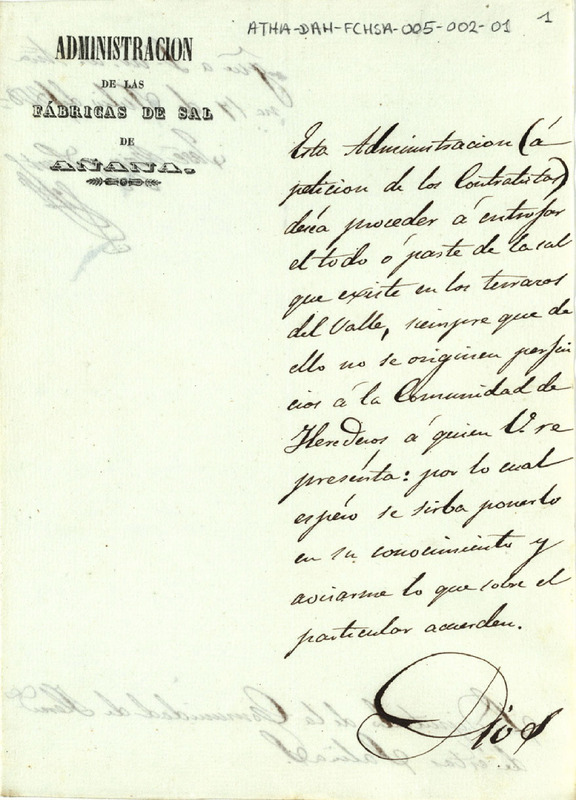 ATHA-DAH-FCHSA-005-002-01
1
ADMINISTRACION
DE LAS
FÁBRICAS DE SAL
DE
AÑANA.
Esta Administracion (á
peticion de los Contratistas)
deséa proceder á entrojar
el todo ó parte de la sal
que existe en los terrazos
del Valle, siempre que de
ello no se originen perjui
cios á la Comunidad de
Herederos á quien V. re
presénta: por lo cual
espéro se sirba ponerlo
en su conocimiento y
avisarme lo que sobre el
particular acuerden.
Dios